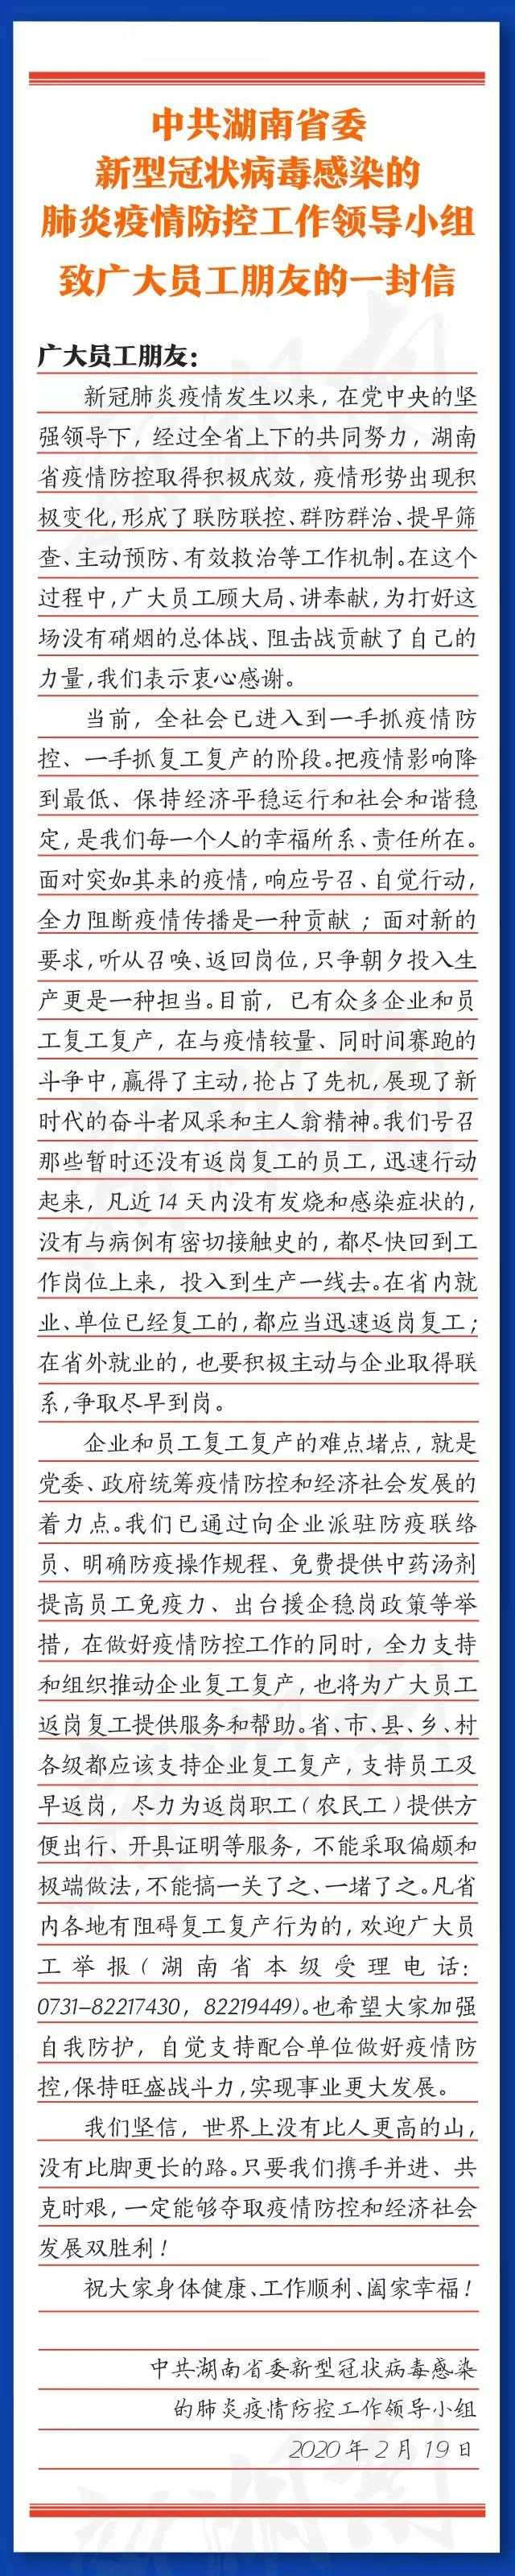 中共湖南省委
新型冠状病毒感染的
肺炎疫情防控工作领导小组
致广大员工朋友的一封信
广大员工朋友：
新冠肺炎疫情发生以来，在党中央的坚
强领导下，经过全省上下的共同努力，湖南
省疫情防控取得积极成效，疫情形势出现积
极变化，形成了联防联控、群防群治、提早筛
查、主动预防、有效救治等工作机制。在这个
过程中，广大员工顾大局、讲奉献，为打好这
场没有硝烟的总体战、阻击战贡献了自己的
力量，我们表示衷心感谢。
当前，全社会已进入到一手抓疫情防
控、一手抓复工复产的阶段。把疫情影响降
到最低、保持经济平稳运行和社会和谐稳
定，是我们每一个人的幸福所系、责任所在。
面对突如其来的疫情，响应号召、自觉行动，
全力阻断疫情传播是一种贡献；面对新的
要求，听从召唤、返回岗位，只争朝夕投入生
产更是一种担当。目前，已有众多企业和员
工复工复产，在与疫情较量、同时间赛跑的
斗争中，赢得了主动，抢占了先机，展现了新
时代的奋斗者风采和主人翁精神。我们号召
那些暂时还没有返岗复工的员工，迅速行动
起来，凡近14天内没有发烧和感染症状的，
没有与病例有密切接触史的，都尽快回到工
作岗位上来，投入到生产一线去。在省内就
业、单位已经复工的，都应当迅速返岗复工；
在省外就业的，也要积极主动与企业取得联
系，争取尽早到岗。
企业和员工复工复产的难点堵点，就是
党委、政府统筹疫情防控和经济社会发展的
着力点。我们已通过向企业派驻防疫联络
员、明确防疫操作规程、免费提供中药汤剂
提高员工免疫力、出台援企稳岗政策等举
措，在做好疫情防控工作的同时，全力支持
和组织推动企业复工复产，也将为广大员工
返岗复工提供服务和帮助。省、市、县、乡、村
各级都应该支持企业复工复产，支持员工及
早返岗，尽力为返岗职工（农民工）提供方
便出行、开具证明等服务，不能采取偏颇和
极端做法，不能搞一关了之、一堵了之。凡省
内各地有阻碍复工复产行为的，欢迎广大员
工举报（湖南省本级受理电话：
0731-82217430，82219449）。也希望大家加强
自我防护，自觉支持配合单位做好疫情防
控，保持旺盛战斗力，实现事业更大发展。
我们坚信，世界上没有比人更高的山，
没有比脚更长的路。只要我们携手并进、共
克时艰，一定能够夺取疫情防控和经济社会
发展双胜利！
祝大家身体健康、工作顺利、阖家幸福！
中共湖南省委新型冠状病毒感染
的肺炎疫情防控工作领导小组
2020年2月19日